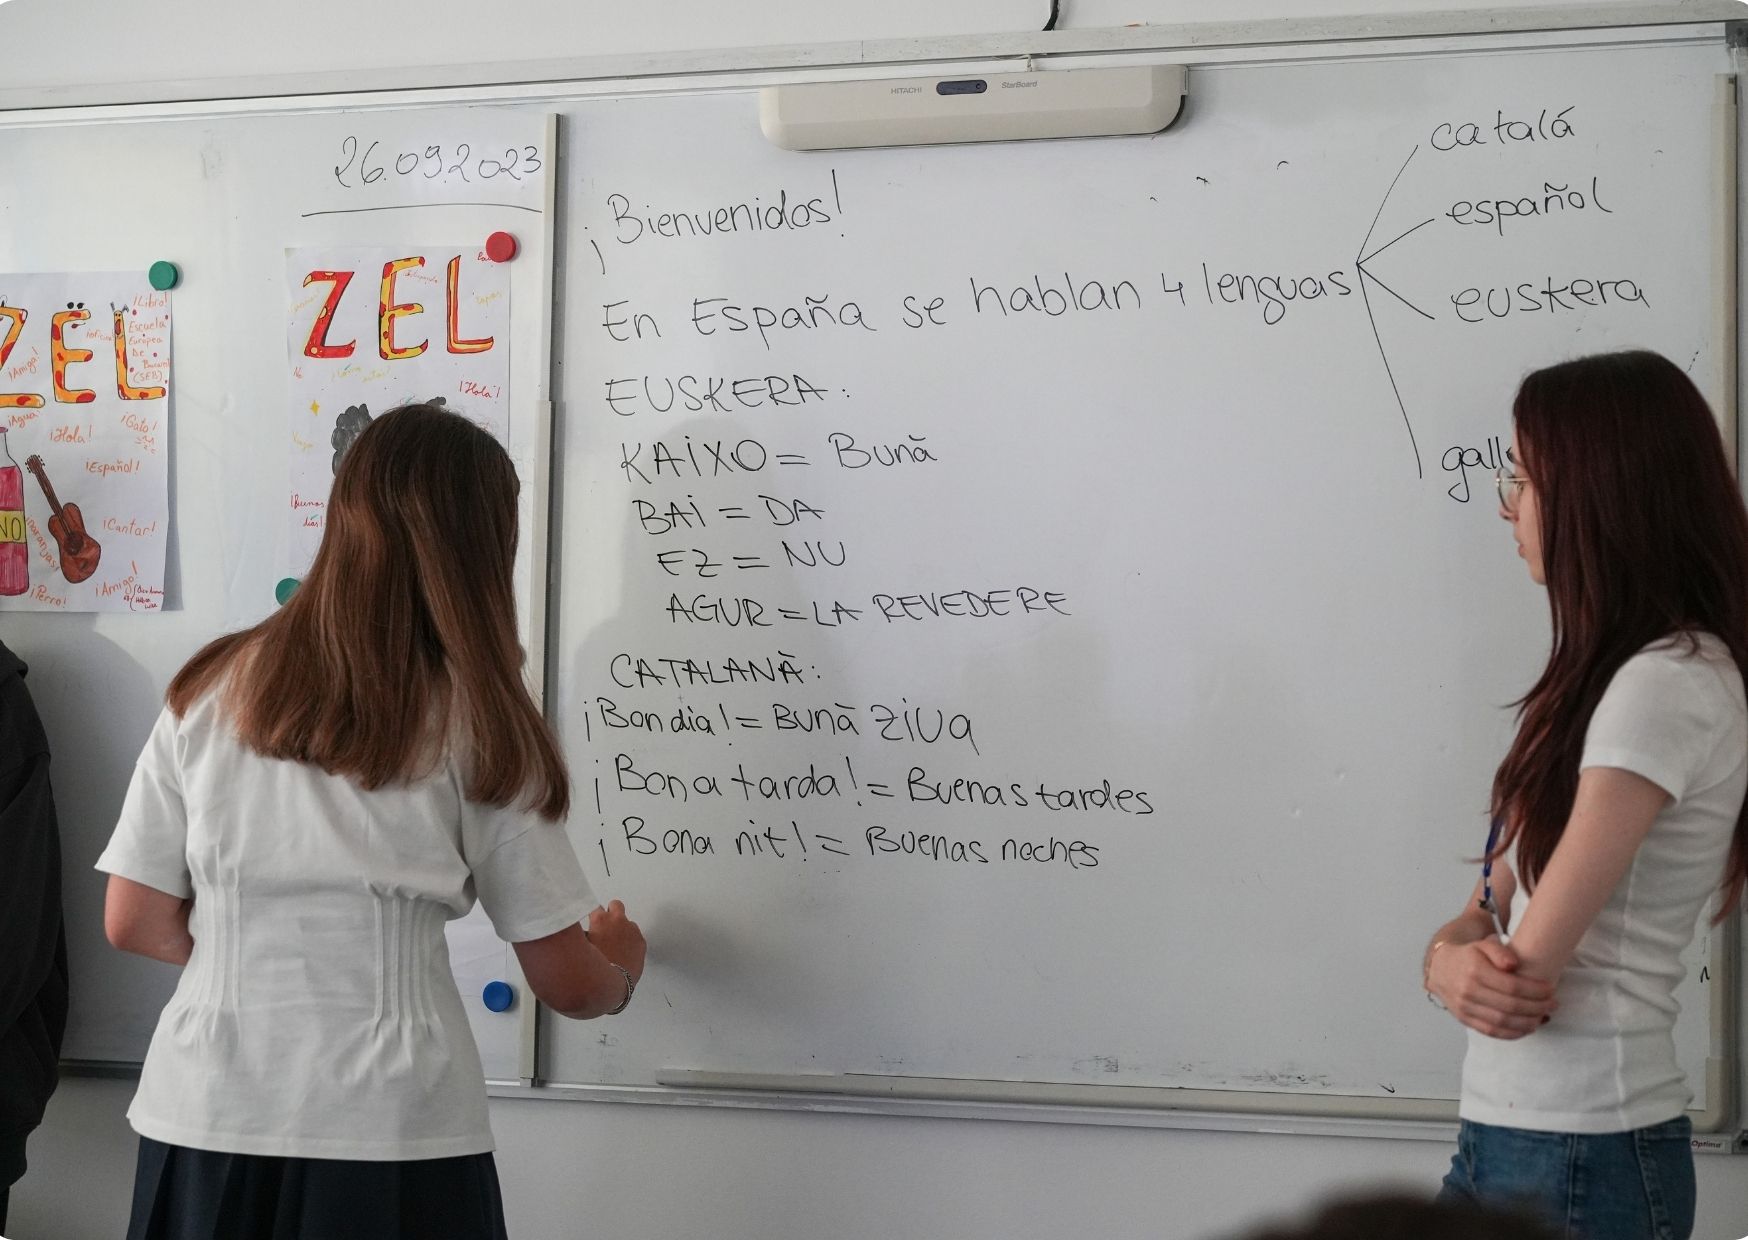 HITACHI StarBoard
26.09.2023
¡Bienvenidos!
En España se hablan 4 lenguas
catalá
español
euskera
EUSKERA:
KAIXO = Bună
BAI = DA
EZ = NU
AGUR = LA REVEDERE
CATALANĂ:
¡Bon dia! = Bună ziua
¡Bona tarda! = Buenas tardes
¡Bona nit! = Buenas noches
ZËL
¡Libro!
Escuela
Europea
De
(SEB)
¡Amiga!
¡Agua!
¡Hola!
¡Gato!
¡Español!
NO
¡Cantar!
¡Perro!
¡Amigo!
ZEL
¡Hola!
¡Buenos
días!
Optima